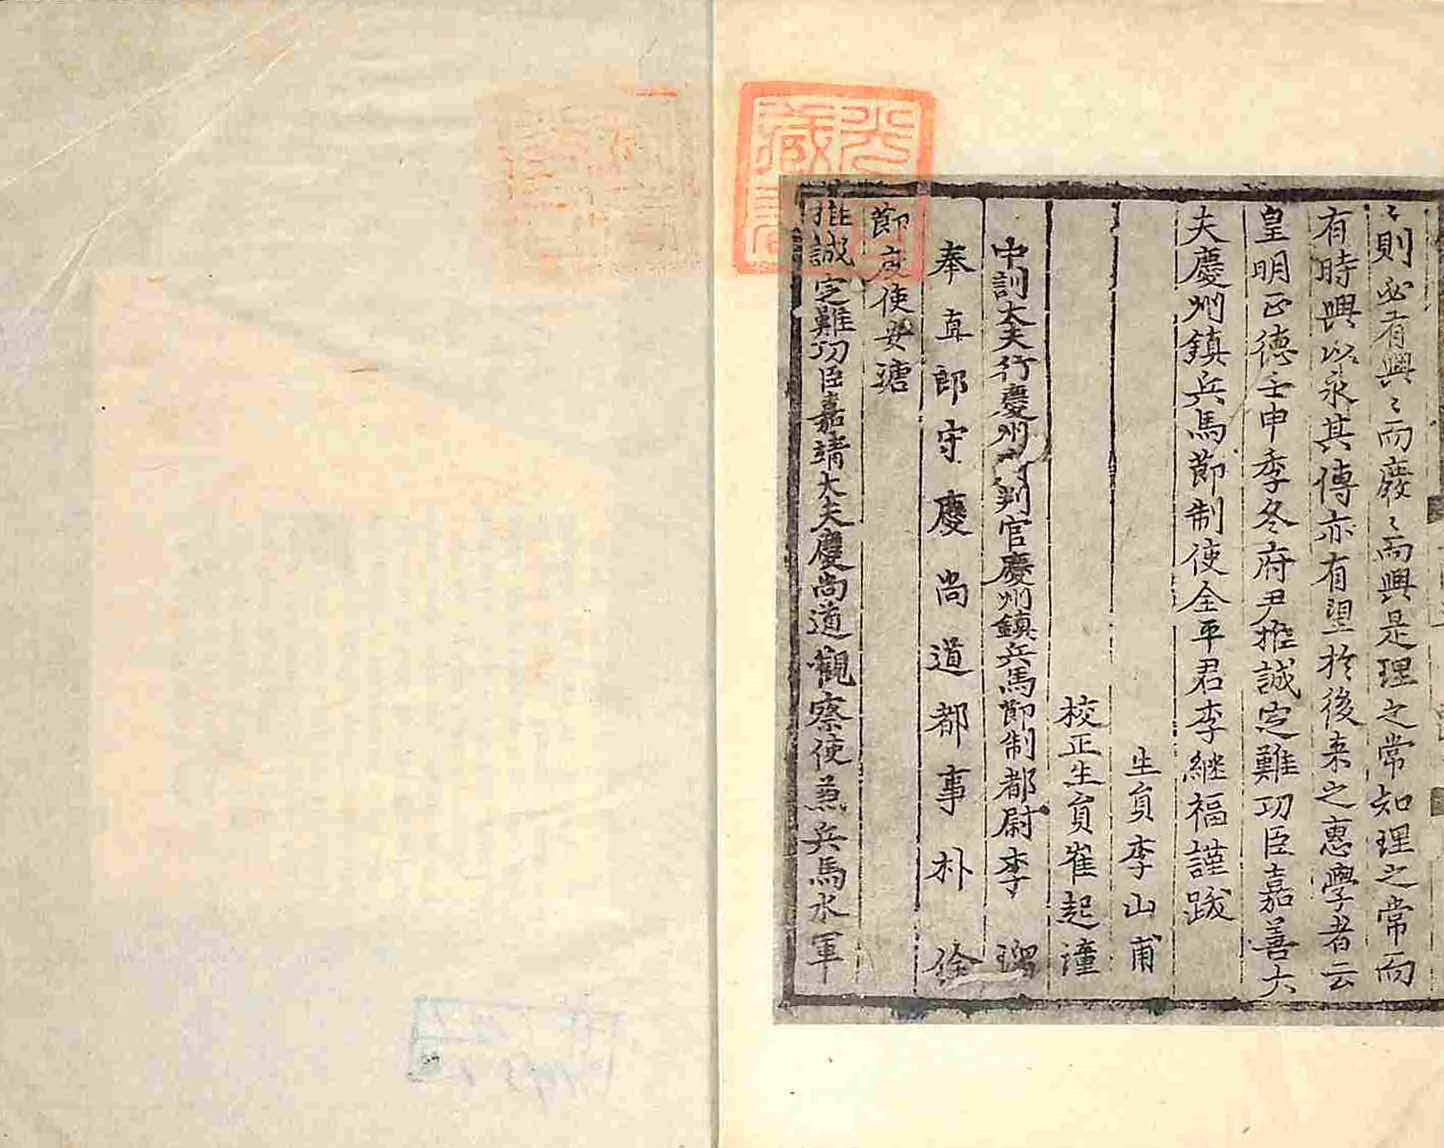 〻則必有興〻而廢〻而興是理之常知理之常而
有時興以永其傳亦有望於後来之惠學者云
皇明正德壬申季冬府尹推誠定難功臣嘉善大
夫慶州鎮兵馬節制使全平君李継福謹跋
生負李山甫
校正生負崔起潼
中訓大夫行慶州判官慶州鎮兵馬節制都尉李瑠
奉直郎守慶尚道都事朴佺
推誠定難功臣嘉靖大夫慶尚道觀察使兼兵馬水軍
節度使安瑭